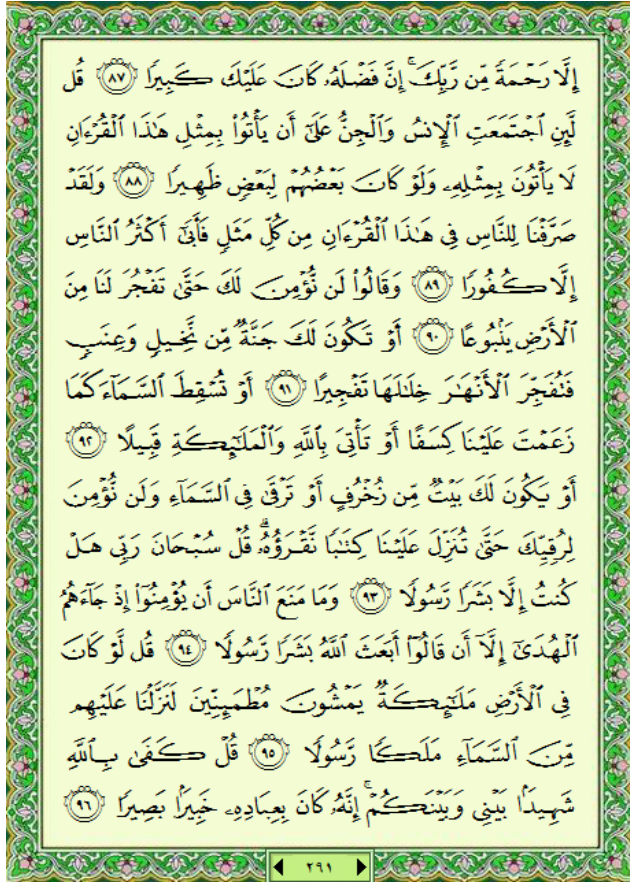 إِلَّا رَحْمَةً مِّن رَّبِّكَ ۚ إِنَّ فَضْلَهُۥ كَانَ عَلَيْكَ كَبِيرًا ﴿٨٧﴾ قُل
لَّئِنِ ٱجْتَمَعَتِ ٱلْإِنسُ وَٱلْجِنُّ عَلَىٰٓ أَن يَأْتُوا۟ بِمِثْلِ هَٰذَا ٱلْقُرْءَانِ
لَا يَأْتُونَ بِمِثْلِهِۦ وَلَوْ كَانَ بَعْضُهُمْ لِبَعْضٍ ظَهِيرًا ﴿٨٨﴾ وَلَقَدْ
صَرَّفْنَا لِلنَّاسِ فِى هَٰذَا ٱلْقُرْءَانِ مِن كُلِّ مَثَلٍ فَأَبَىٰٓ أَكْثَرُ ٱلنَّاسِ
إِلَّا كُفُورًا ﴿٨٩﴾ وَقَالُوا۟ لَن نُّؤْمِنَ لَكَ حَتَّىٰ تَفْجُرَ لَنَا مِنَ
ٱلْأَرْضِ يَنۢبُوعًا ﴿٩٠﴾ أَوْ تَكُونَ لَكَ جَنَّةٌ مِّن نَّخِيلٍ وَعِنَبٍ
فَتُفَجِّرَ ٱلْأَنْهَٰرَ خِلَٰلَهَا تَفْجِيرًا ﴿٩١﴾ أَوْ تُسْقِطَ ٱلسَّمَآءَ كَمَا
زَعَمْتَ عَلَيْنَا كِسَفًا أَوْ تَأْتِىَ بِٱللَّهِ وَٱلْمَلَٰٓئِكَةِ قَبِيلًا ﴿٩٢﴾
أَوْ يَكُونَ لَكَ بَيْتٌ مِّن زُخْرُفٍ أَوْ تَرْقَىٰ فِى ٱلسَّمَآءِ وَلَن نُّؤْمِنَ
لِرُقِيِّكَ حَتَّىٰ تُنَزِّلَ عَلَيْنَا كِتَٰبًا نَّقْرَؤُهُۥ ۗ قُلْ سُبْحَانَ رَبِّى هَلْ
كُنتُ إِلَّا بَشَرًا رَّسُولًا ﴿٩٣﴾ وَمَا مَنَعَ ٱلنَّاسَ أَن يُؤْمِنُوٓا۟ إِذْ جَآءَهُمُ
ٱلْهُدَىٰٓ إِلَّآ أَن قَالُوٓا۟ أَبَعَثَ ٱللَّهُ بَشَرًا رَّسُولًا ﴿٩٤﴾ قُل لَّوْ كَانَ
فِى ٱلْأَرْضِ مَلَٰٓئِكَةٌ يَمْشُونَ مُطْمَئِنِّينَ لَنَزَّلْنَا عَلَيْهِم
مِّنَ ٱلسَّمَآءِ مَلَكًا رَّسُولًا ﴿٩٥﴾ قُلْ كَفَىٰ بِٱللَّهِ
شَهِيدًۢا بَيْنِى وَبَيْنَكُمْ ۚ إِنَّهُۥ كَانَ بِعِبَادِهِۦ خَبِيرًۢا بَصِيرًا ﴿٩٦﴾
٢٩١